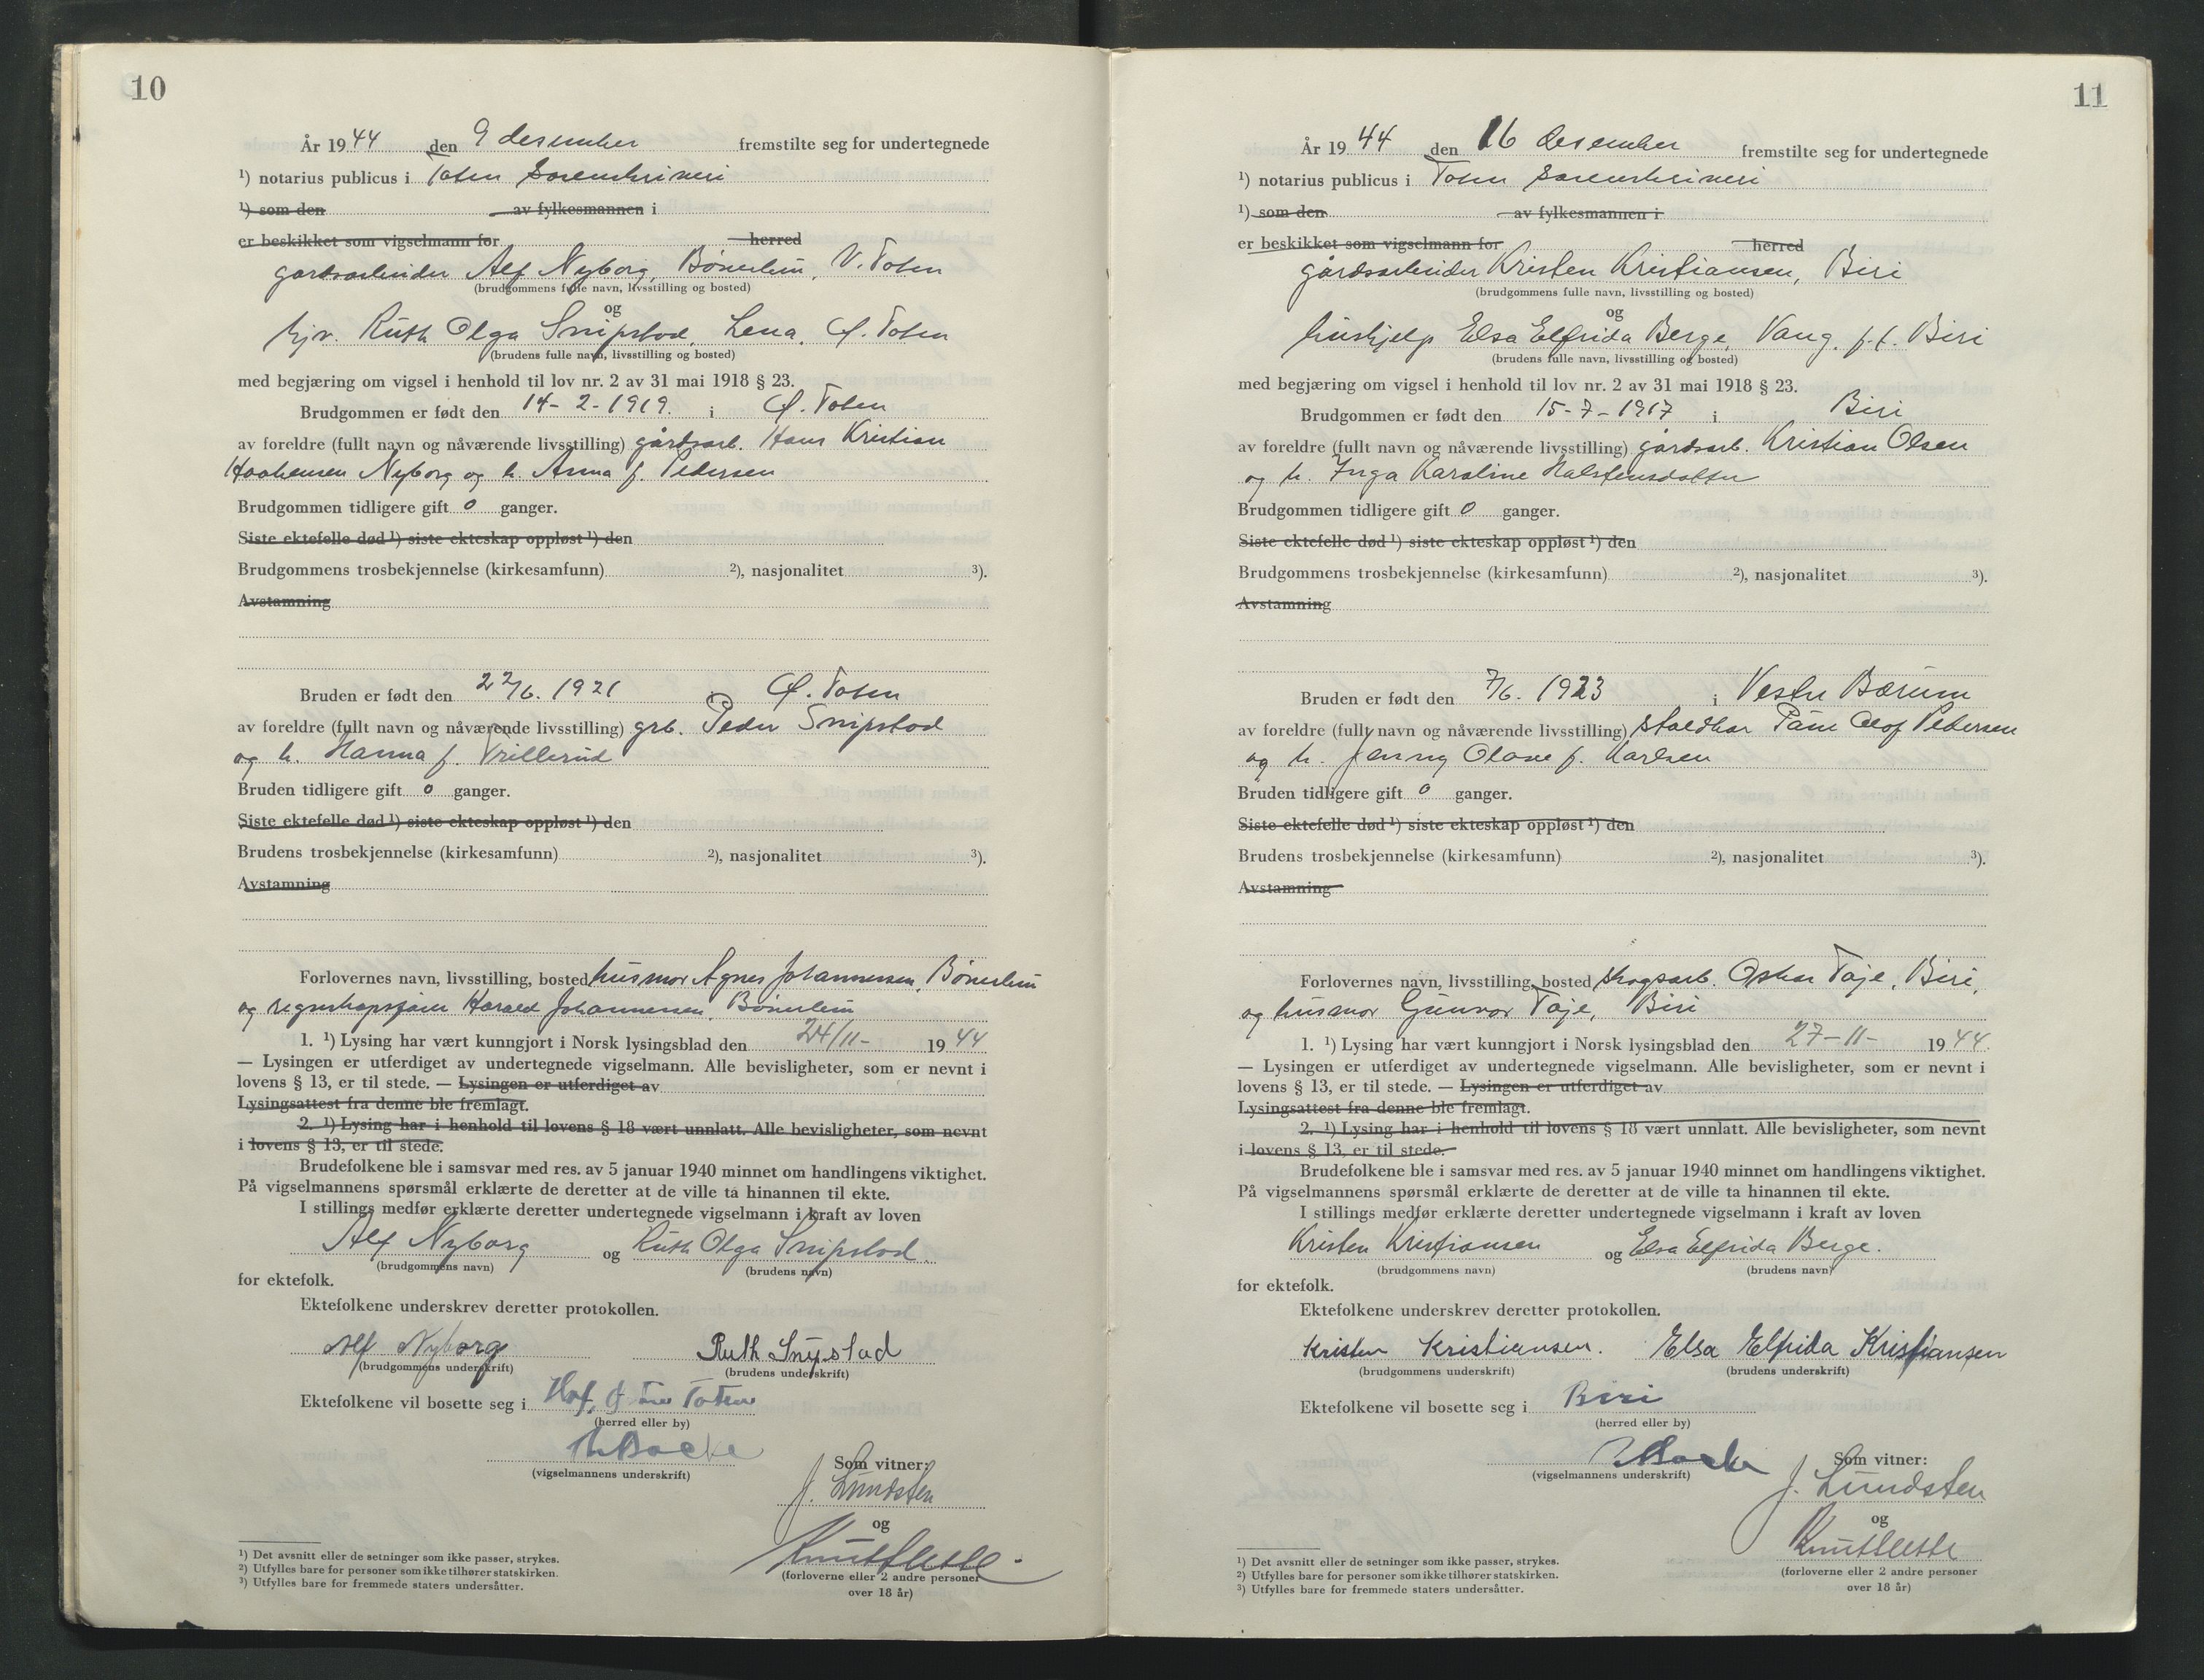 10
År 1944 den 9 desember fremstilte seg for undertegnede
¹) notarius publicus i Toten Sorenskriveri
¹) som den av fylkesmannen i
er beskikket som vigselmann for herred
gardsarbeider Alf Nyborg, Bøverbru, V. Toten
(brudgommens fulle navn, livsstilling og bosted)
og
hjv. Ruth Olga Snipstad, Lena, Ø. Toten
(brudens fulle navn, livsstilling og bosted)
med begjæring om vigsel i henhold til lov nr. 2 av 31 mai 1918 § 23.
Brudgommen er født den 14-2-1919. i Ø. Toten
av foreldre (fullt navn og nåværende livsstilling) gårdsarb. Hans Kristian
Haakensen Nyborg og h. Anna f. Pedersen
Brudgommen tidligere gift 0 ganger.
Siste ektefelle død ¹) siste ekteskap oppløst ¹) den
Brudgommens trosbekjennelse (kirkesamfunn) ²), nasjonalitet ³).
Avstamning
Bruden er født den 22/6. 1921 i Ø. Toten
av foreldre (fullt navn og nåværende livsstilling) grb. Peder Snipstad
og h. Hanna f.
Bruden tidligere gift 0 ganger.
Siste ektefelle død ¹) siste ekteskap oppløst ¹) den
Brudens trosbekjennelse (kirkesamfunn) ²), nasjonalitet ³).
Avstamning
Forlovernes navn, livsstilling, bosted husmor Agnes Johannessen, Bøverbru
og regnskapsfører Harald Johannessen, Bøverbru
1. ¹) Lysing har vært kunngjort i Norsk lysingsblad den 24/11- 1944
— Lysingen er utferdiget av undertegnede vigselmann. Alle bevisligheter, som er nevnt i
lovens § 13, er til stede. — Lysingen er utferdiget av
Lysingsattest fra denne ble fremlagt.
2. ¹) Lysing har i henhold til lovens § 18 vært unnlatt. Alle bevisligheter, som nevnt
i lovens § 13, er til stede.
Brudefolkene ble i samsvar med res. av 5 januar 1940 minnet om handlingens viktighet.
På vigselmannens spørsmål erklærte de deretter at de ville ta hinannen til ekte.
I stillings medfør erklærte deretter undertegnede vigselmann i kraft av loven
Alf Nyborg og Ruth Olga Snipstad.
(brudgommens navn) (brudens navn)
for ektefolk.
Ektefolkene underskrev deretter protokollen.
Alf Nyborg Ruth Snipstad
(brudgommens underskrift) (brudens underskrift)
Ektefolkene vil bosette seg i Hof, Østre Toten
(herred eller by)
(vigselmannens underskrift) Som vitner:
J. Lundsten
og
(forloverne eller 2 andre personer
over 18 år)
¹) Det avsnitt eller de setninger som ikke passer, strykes.
²) Utfylles bare for personer som ikke tilhører statskirken.
³) Utfylles bare for fremmede staters undersåtter.
11
År 1944 den 16 desember fremstilte seg for undertegnede
¹) notarius publicus i Toten Sorenskriveri
¹) som den av fylkesmannen i
er beskikket som vigselmann for herred
gårdsarbeider Kristen Kristiansen, Biri
(brudgommens fulle navn, livsstilling og bosted)
og
hushjelp Elsa Elfrida Berge, Vang, p.t. Biri
(brudens fulle navn, livsstilling og bosted)
med begjæring om vigsel i henhold til lov nr. 2 av 31 mai 1918 § 23.
Brudgommen er født den 15-7-1917 i Biri
av foreldre (fullt navn og nåværende livsstilling) gårdsarb. Kristian Olsen
og h. Inga Karoline Halstensdatter
Brudgommen tidligere gift 0 ganger.
Siste ektefelle død ¹) siste ekteskap oppløst ¹) den
Brudgommens trosbekjennelse (kirkesamfunn) ²), nasjonalitet ³).
Avstamning
Bruden er født den 7/6. 1923 i Vestre Bærum
av foreldre (fullt navn og nåværende livsstilling) Olof Pedersen
og h. Jenny Olave f. Karlsen
Bruden tidligere gift 0 ganger.
Siste ektefelle død ¹) siste ekteskap oppløst ¹) den
Brudens trosbekjennelse (kirkesamfunn) ²), nasjonalitet ³).
Avstamning
Forlovernes navn, livsstilling, bosted skogsarb. Oskar Taje, Biri,
og husmor Gunvor Taje, Biri
1. ¹) Lysing har vært kunngjort i Norsk lysingsblad den 27-11- 1944.
— Lysingen er utferdiget av undertegnede vigselmann. Alle bevisligheter, som er nevnt i
lovens § 13, er til stede. — Lysingen er utferdiget av
Lysingsattest fra denne ble fremlagt.
2. ¹) Lysing har i henhold til lovens § 18 vært unnlatt. Alle bevisligheter, som nevnt
i lovens § 13, er til stede.
Brudefolkene ble i samsvar med res. av 5 januar 1940 minnet om handlingens viktighet.
På vigselmannens spørsmål erklærte de deretter at de ville ta hinannen til ekte.
I stillings medfør erklærte deretter undertegnede vigselmann i kraft av loven
Kristen Kristiansen og Elsa Elfrida Berge.
(brudgommens navn) (brudens navn)
for ektefolk.
Ektefolkene underskrev deretter protokollen.
Kristen Kristiansen. Elsa Elfrida Kristiansen
(brudgommens underskrift) (brudens underskrift)
Ektefolkene vil bosette seg i Biri
(herred eller by)
(vigselmannens underskrift) Som vitner:
J. Lundsten
og
(forloverne eller 2 andre personer
over 18 år)
¹) Det avsnitt eller de setninger som ikke passer, strykes.
²) Utfylles bare for personer som ikke tilhører statskirken.
³) Utfylles bare for fremmede staters undersåtter.